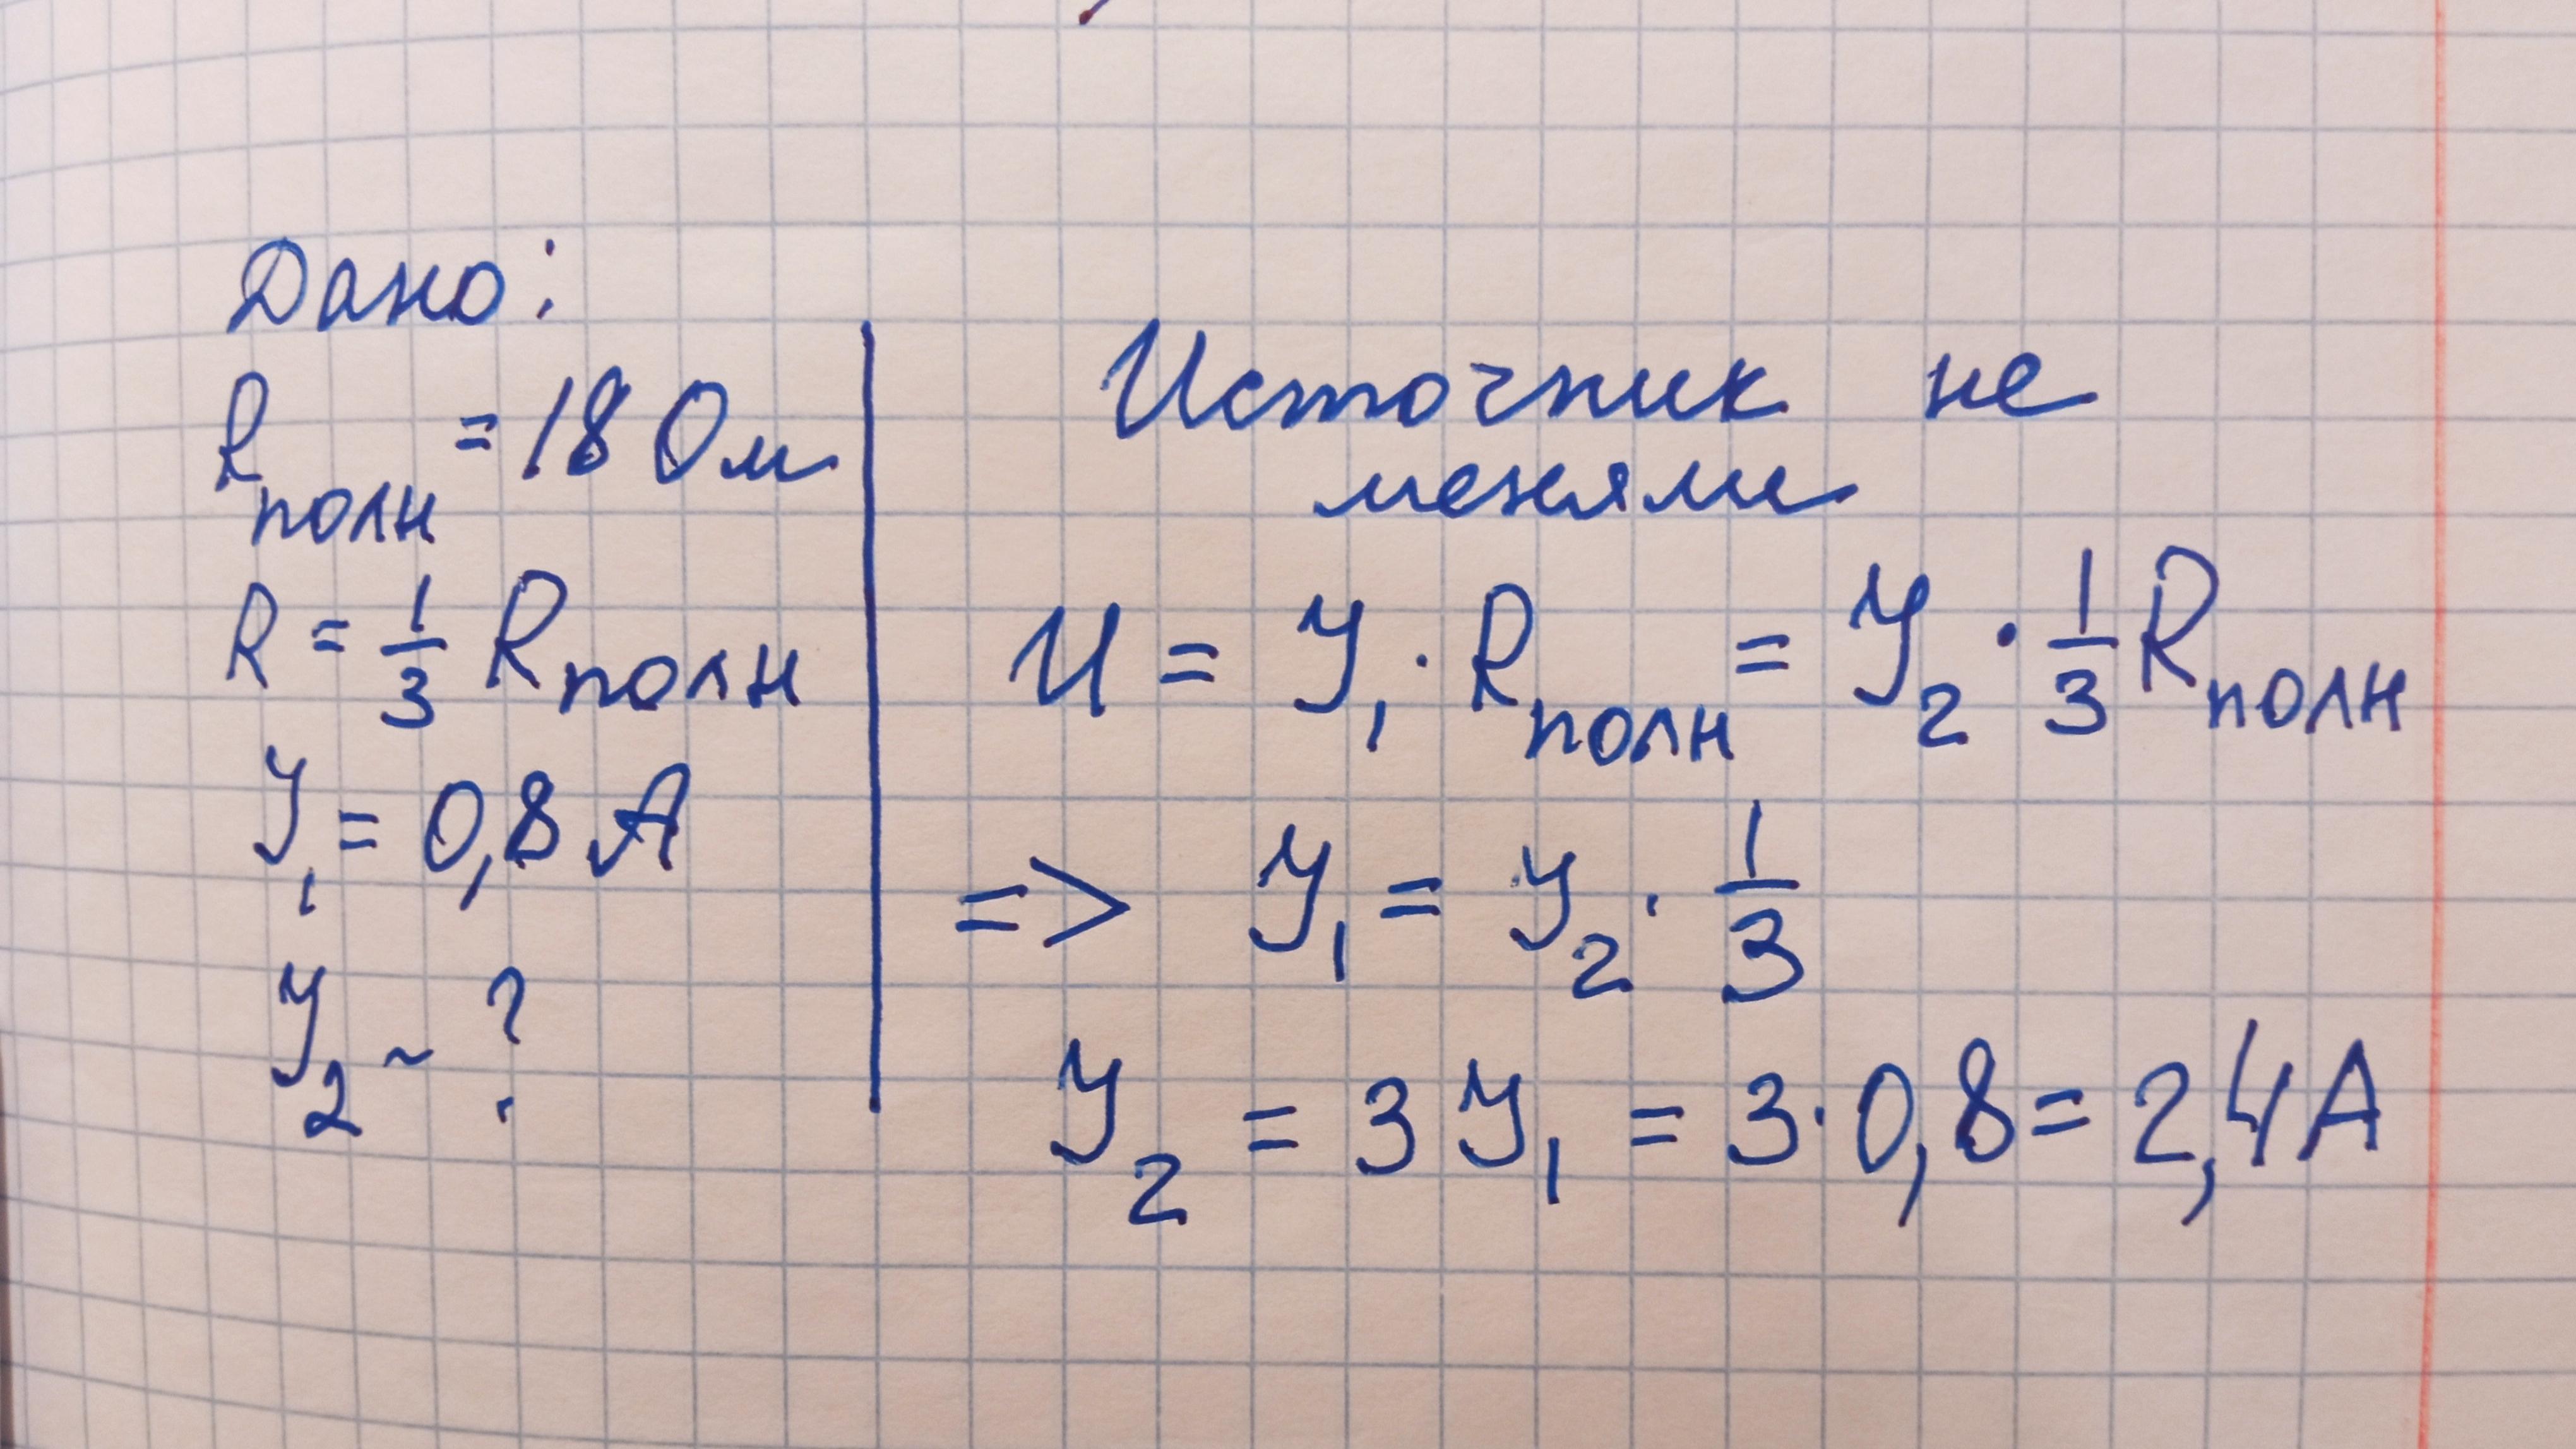 Дано:
Rполн = 18 Ом
R = 1/3 Rполн
У₁ = 0,8 А
У₂ ~ ?
Источник не
меняли
U = У₁ · Rполн = У₂ · 1/3 Rполн
=> У₁ = У₂ · 1/3
У₂ = 3 У₁ = 3 · 0,8 = 2,4 А